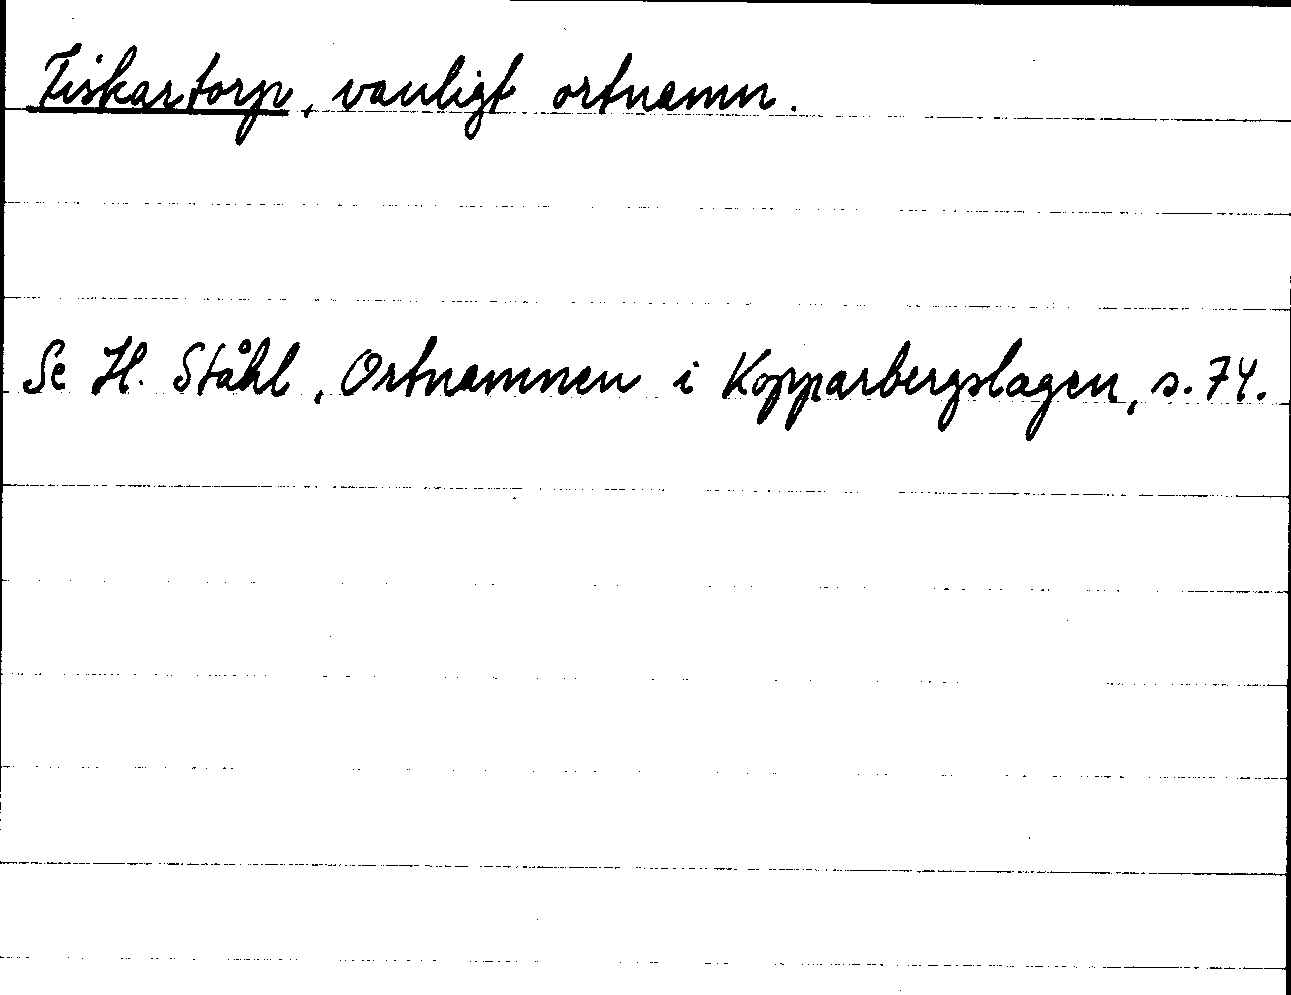 Fiskartorp, vanligt ortnamn.
Se H. Ståhl, Ortnamnen i Kopparbergslagen, s. 74.